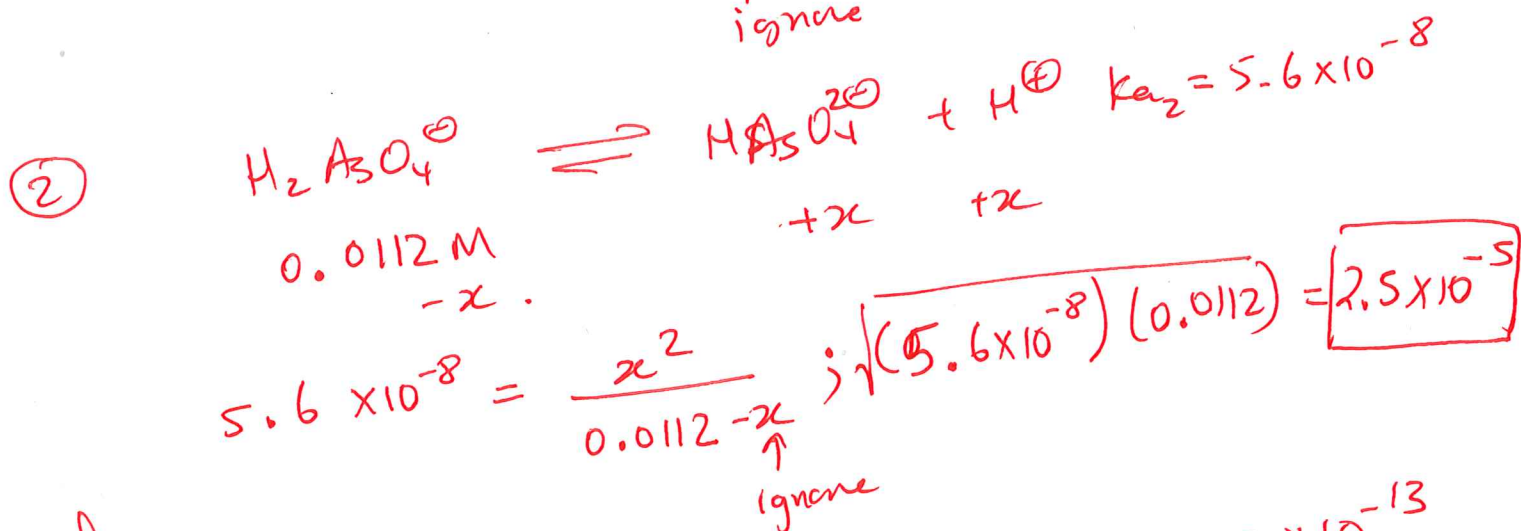 ignore
② H₂AsO₄⊖ ⇌ HAsO₄²⊖ + H⊕ Ka₂ = 5.6 x10⁻⁸
0.0112 M +x +x
-x.
5.6 x10⁻⁸ = x² / 0.0112 -x ; √(5.6x10⁻⁸) (0.0112) = 2.5x10⁻⁵
↑
ignore
10⁻¹³